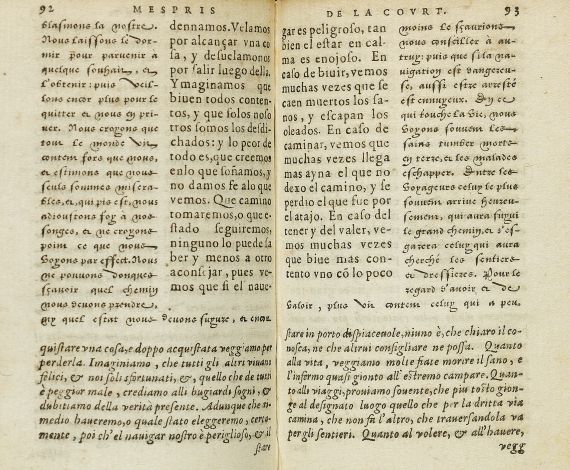 92 MESPRIS
blasmons la nostre.
Nous laissons le dor-
mir pour parvenir à
quelque souhait, et
l'obtenir: puis veil-
lons encor plus pour le
quitter et nous en pri-
ver. Nous croyons que
tout le monde vit
content fors que nous,
et estimons que nous
seuls sommes misera-
bles, et, qui pis est, nous
adioustons foy à nos
songes, et ne croyons
point ce que nous
voyons par effect. Nous
ne pouvons donques
sçavoir quel chemin
nous devons prendre,
ny quel estat nous devons suyvre, et encor
dennamos. Velamos
por alcançar vna co
sa, y desuelamonos
por salir luego della.
Ymaginamos que
biuen todos conten-
tos, y que solos noso
tros somos los desdi
chados: y lo peor de
todo es, que creemos
en lo que soñamos, y
no damos fe a lo que
vemos. Que camino
tomaremos, o que e-
stado seguiremos,
ninguno lo puede sa
ber y menos a otro
aconsejar, pues ve-
mos que si el naue-
quistare vna cosa, e doppo acquistata veggiamo per
perderla. Imaginiamo, che tutti gli altri viuano
felici, & noi soli sfortunati, &, quello che de tutti
è peggior male, crediamo alli bugiardi sogni, &
dubitiamo della verità presente. Adunque che ri-
medio haueremo, o quale stato eleggeremo, certa-
mente, poi ch'el nauigar nostro è periglioso, & il
stare
DE LA COVRT. 93
gar es peligroso, tan
bien el estar en cal-
ma es enojoso. En
caso de biuir, vemos
muchas vezes que se
caen muertos los sa-
nos, y escapan los
oleados. En caso de
caminar, vemos que
muchas vezes llega
mas ayna el que no
dexo el camino, y se
perdio el que fue por
el atajo. En caso del
tener y del valer, ve-
mos muchas vezes
que biue mas con-
tento vno cõ lo poco
moins le sçaurions
nous conseiller à au-
truy: puis que si la na-
vigation est dangereu-
se, aussi estre arresté
est ennuyeux. En ce
qui touche la vie, nous
voyons souvent les
sains tumber morts
en terre, et les malades
eschapper. Entre les
voyageurs celuy le plus
souvent arrive heureu-
sement, qui aura suyvi
le grand chemin, et s'es-
garera celuy qui aura
cherché les sentiers
et dressieres. Pour le
regard d'avoir et de
valoir, plus vit content celuy qui a peu,
stare in porto dispiaceuole, niuno è, che chiaro il co-
nosca, ne che altrui consigliare ne possa. Quanto
alla vita, veggiamo molte fiate morire il sano, e
l'infermo quasi gionto all'estremo campare. Quan-
to alli viaggi, prouiamo souente, che piu tosto gion-
ge al designato luogo quello che per la dritta via
camina, che non fa l'altro, che trauersandola va
per gli sentieri. Quanto al volere, & all'hauere,
vegg